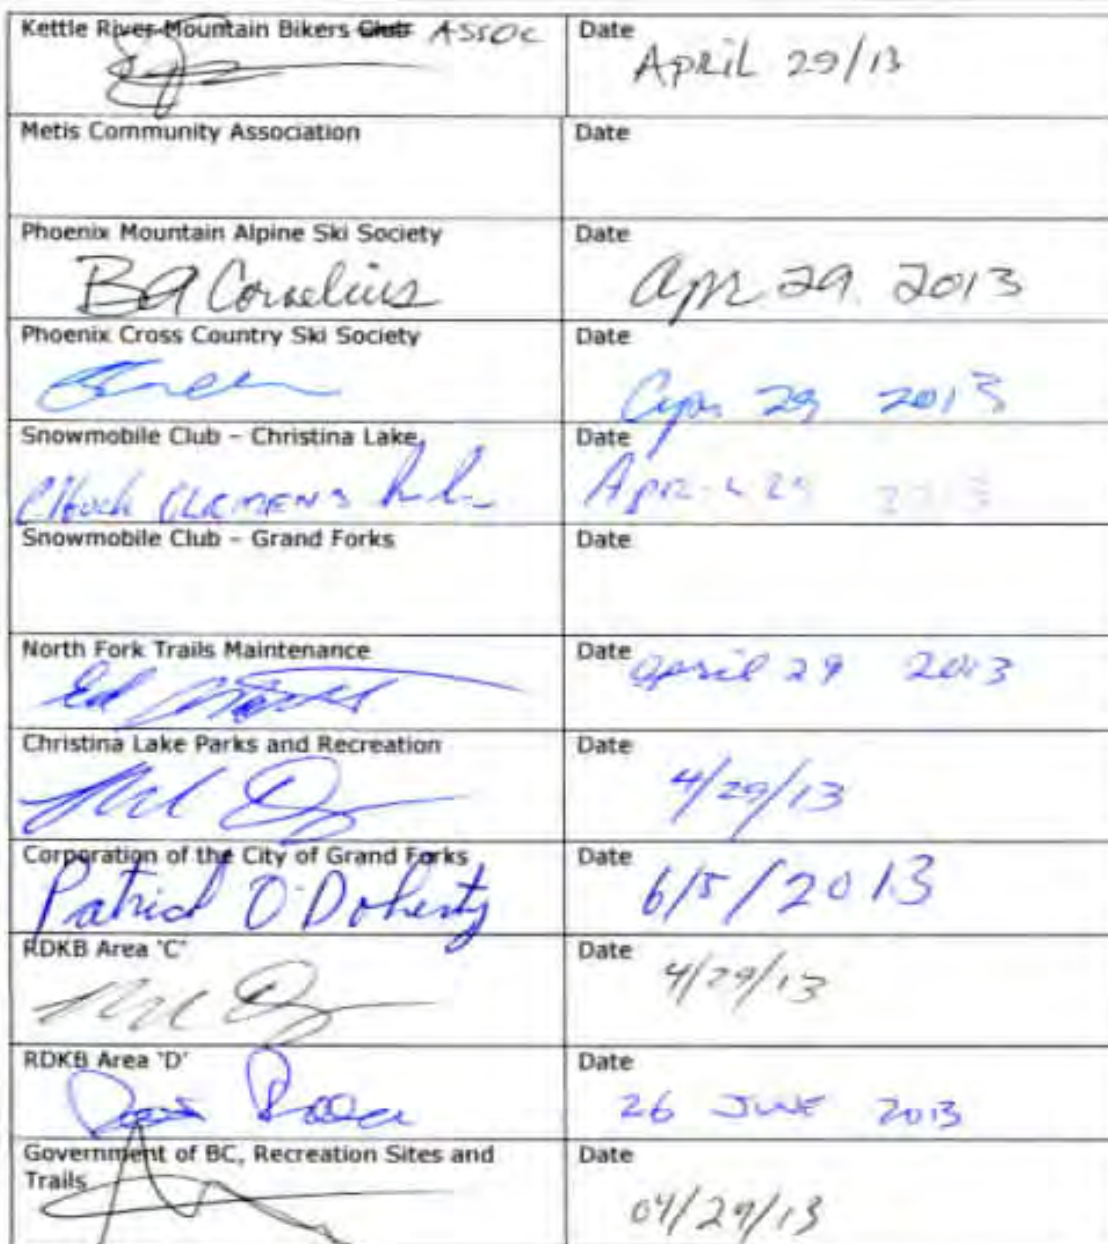 Kettle River Mountain Bikers Club ASSOC
Date
April 29/13
Metis Community Association
Date
Phoenix Mountain Alpine Ski Society
BA Cornelius
Date
Apr 29 2013
Phoenix Cross Country Ski Society
Date
Apr 29 2013
Snowmobile Club – Christina Lake
Chuck CLEMENS
Date
April 29 2013
Snowmobile Club – Grand Forks
Date
North Fork Trails Maintenance
Ed
Date
April 29 2013
Christina Lake Parks and Recreation
Date
4/29/13
Corporation of the City of Grand Forks
Patrick O'Doherty
Date
6/5/2013
RDKB Area 'C'
Date
4/29/13
RDKB Area 'D'
Date
26 JUNE 2013
Government of BC, Recreation Sites and
Trails
Date
04/29/13